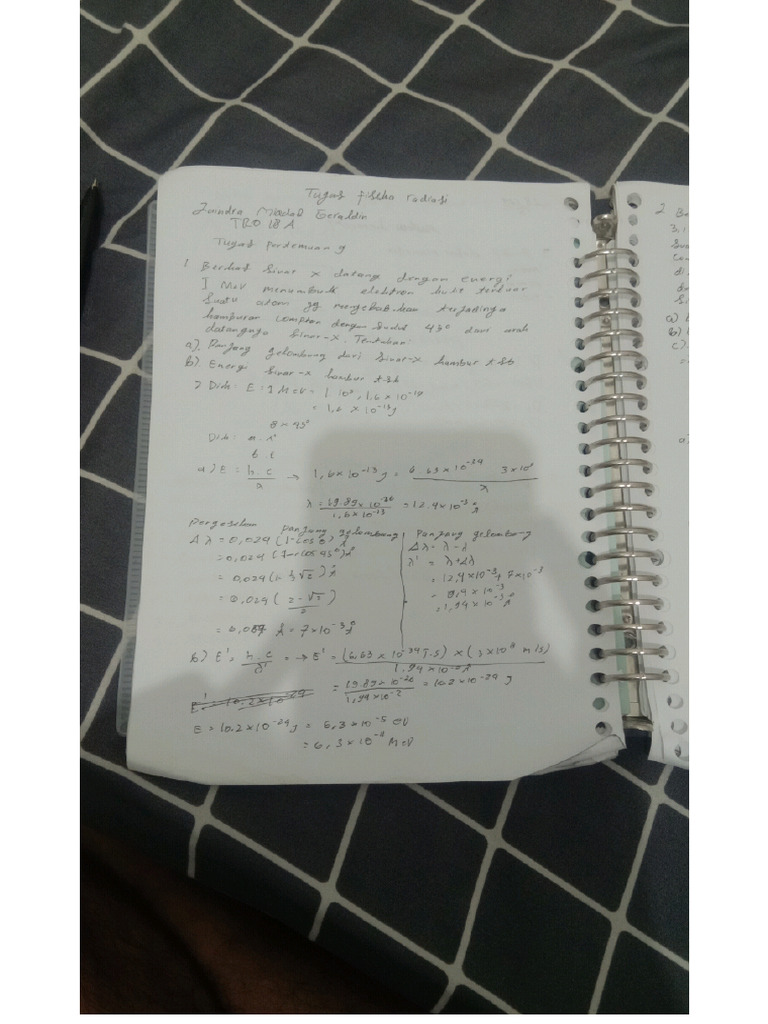 Tugas fisika radiasi
TRO IB A
Tugas Pertemuan 9
1. Berkas Sinar X datang dengan energi
1 MeV menumbuk elektron kulit terluar
Suatu atom yg mengebabkan terjadinya
hamburan Compton dengan sudut 45° dari arah
datangnya Sinar-X. Tentukan:
a). Panjang gelombang dari Sinar-X hambur tsb
b) Energi Sinar-X hambur tsb
Dik: E = 1 MeV = 1.10⁶, 1.6 × 10⁻¹⁹
= 1,6 × 10⁻¹³ J
θ = 45°
Dit: a. λ'
a) E = h.c / λ → 1,6×10⁻¹³ = 6.63×10⁻³⁴ 3×10⁸ / λ
λ = 19.89×10⁻²⁶ / 1,6×10⁻¹³ = 12.4×10⁻³ Å
Pergeseran Panjang gelombang
Δλ = 0,024 (1-cos θ) Å
= 0,024 (1-cos 45°) Å
= 0,024 (1-½√2) Å
= 0,024 (2-√2 / 2)
= 0,007 Å = 7×10⁻³ Å
Panjang gelombang
Δλ = λ' - λ
λ' = λ + Δλ
= 12,4×10⁻³ + 7×10⁻³
= 1,94×10⁻² Å
b) E' = h.c / λ' => E' = (6.63×10⁻³⁴ J.s) × (3×10⁸ m/s) / 1.94×10⁻² Å
= 19.89×10⁻²⁶ / 1,94×10⁻² = 10.2×10⁻²⁴ J
E = 10.2×10⁻²⁴ J = 6,3×10⁻⁵ eV
= 6,3×10⁻¹¹ MeV
2
3.1
a)
b)
c).